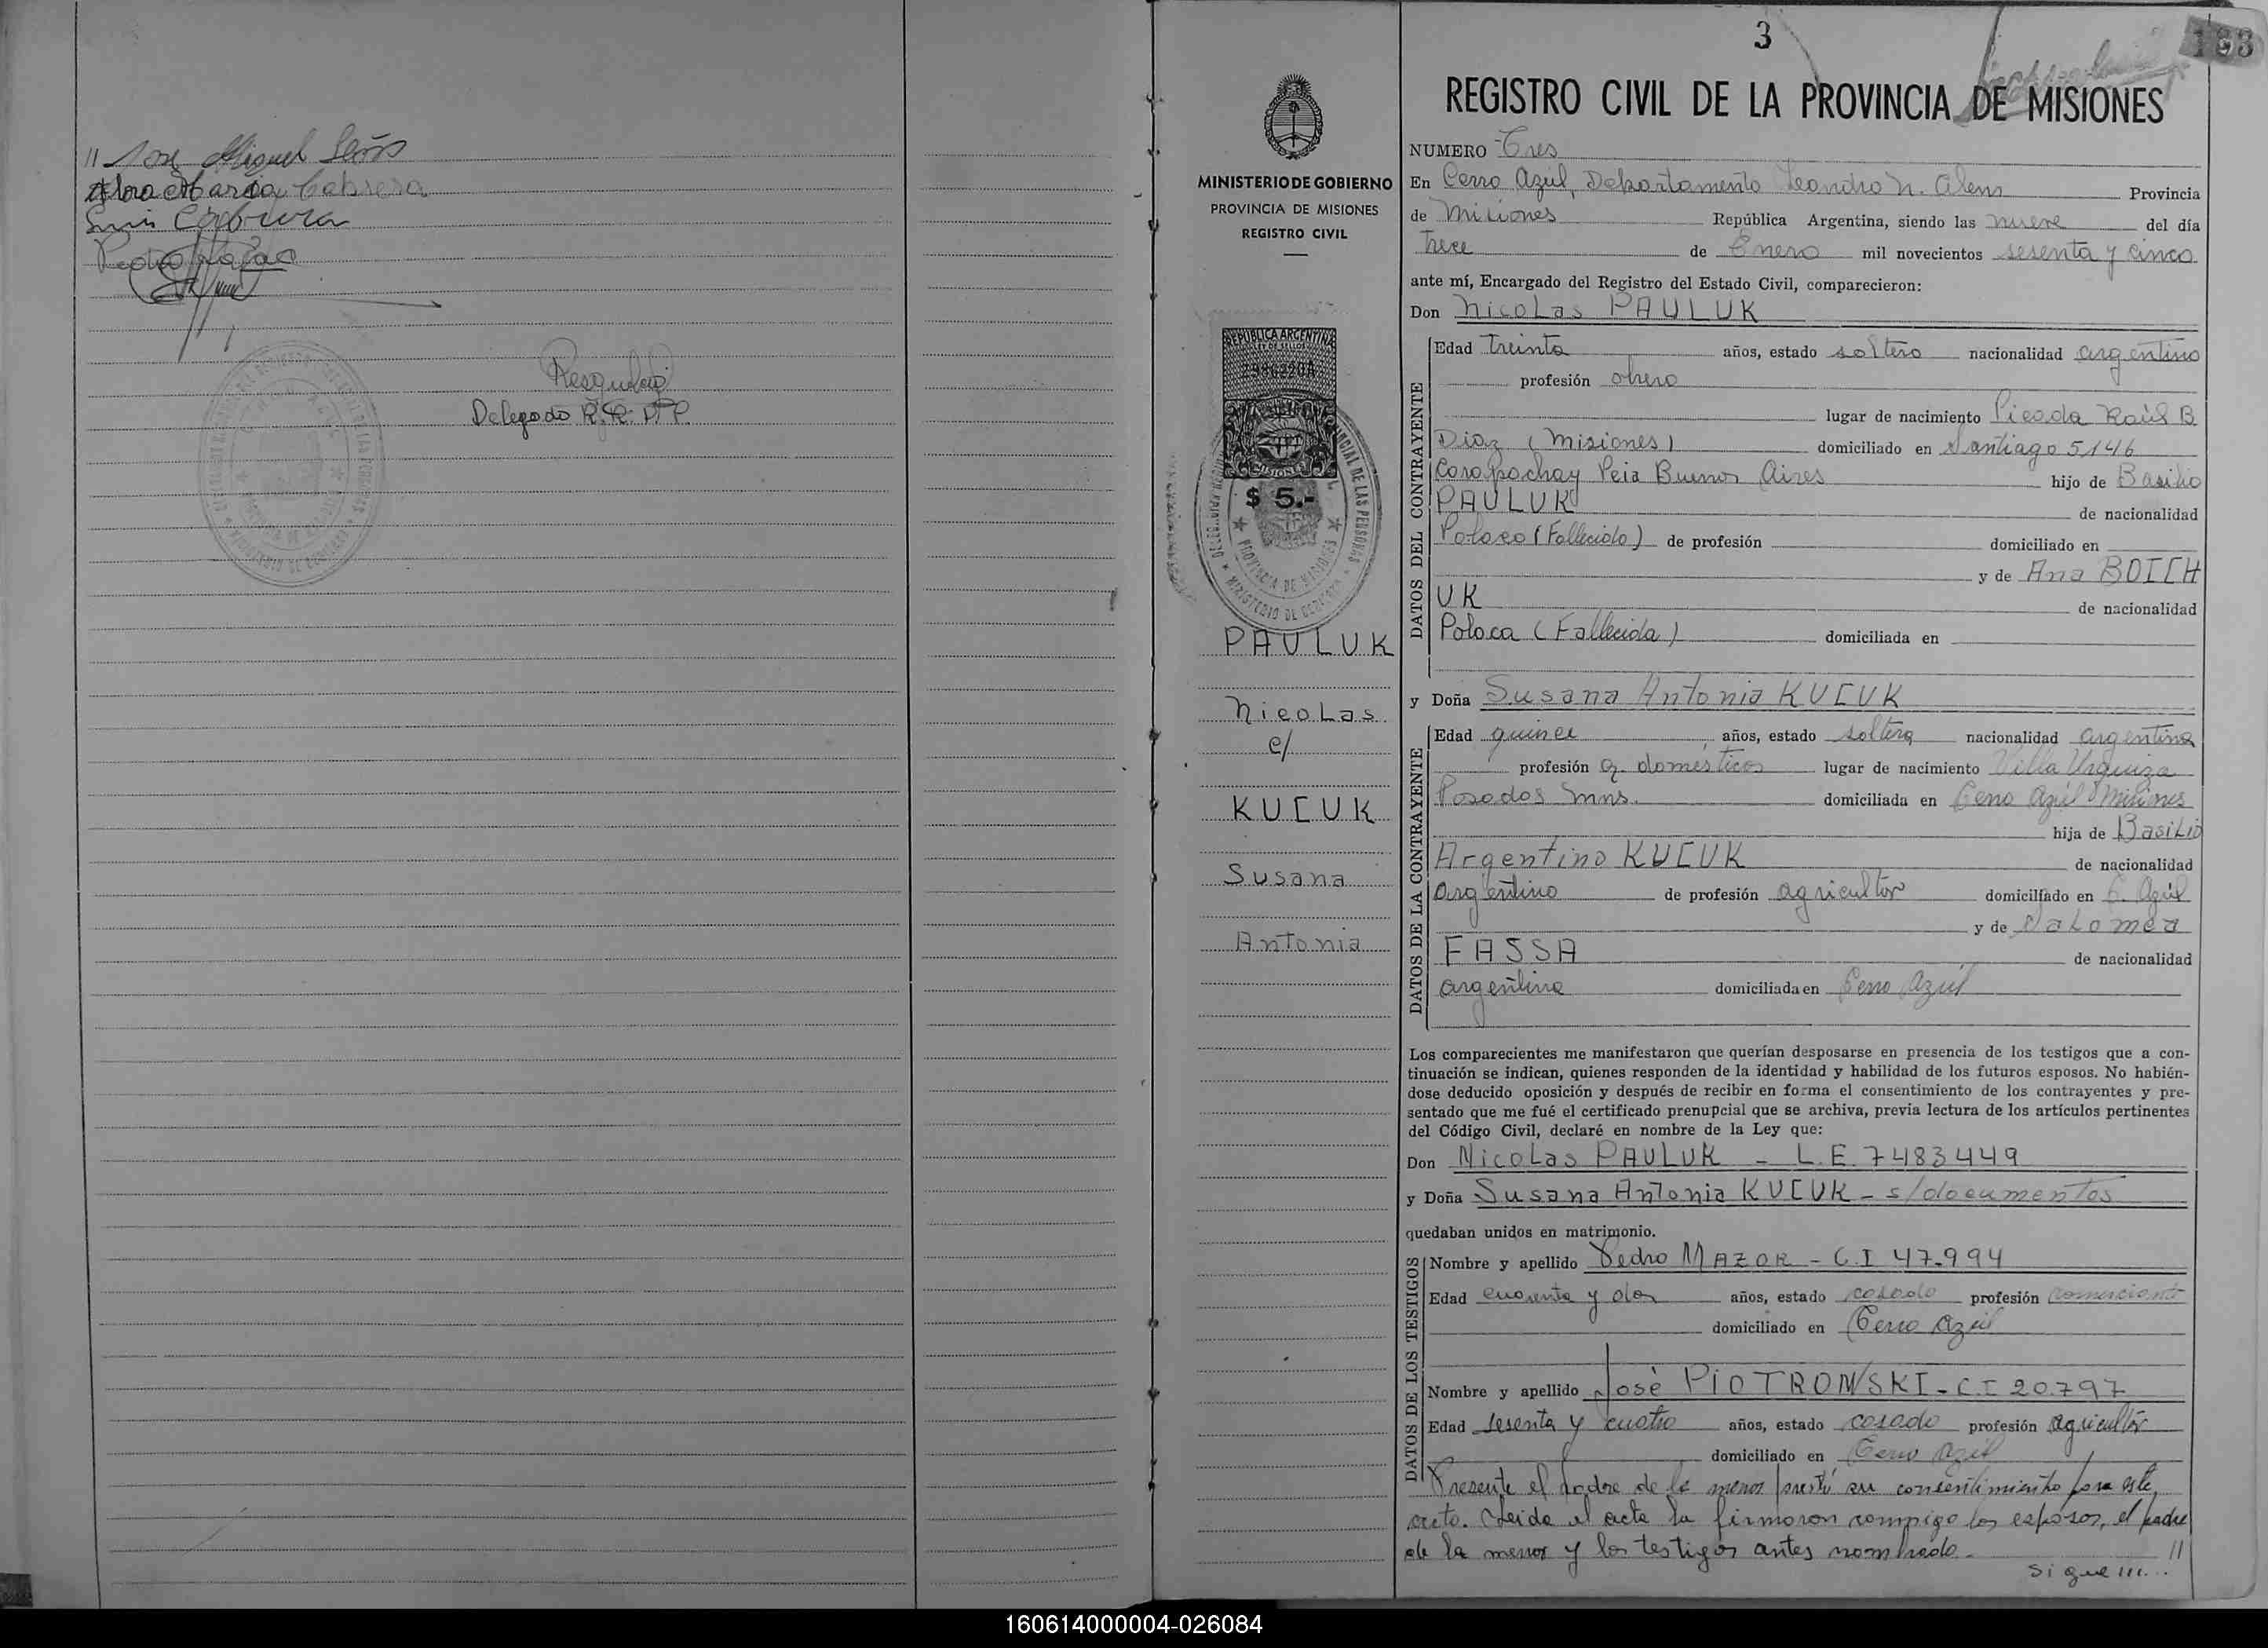 // José Miguel
Alva María Cabrera
Luis Cabrera
Pedro
Delegado R.R. P.P.
3
183
REGISTRO CIVIL DE LA PROVINCIA DE MISIONES
MINISTERIO DE GOBIERNO
PROVINCIA DE MISIONES
REGISTRO CIVIL
REPUBLICA ARGENTINA
LEY DE SELLOS
MISIONES
$ 5.-
PROVINCIA DE MISIONES
MINISTERIO DE GOBIERNO
PAULUK
Nicolas
c/
KUCUK
Susana
Antonia
NUMERO Tres
En Cerro Azul, Departamento Leandro N. Alem Provincia
de Misiones República Argentina, siendo las nueve del día
trece de Enero mil novecientos sesenta y cinco
ante mí, Encargado del Registro del Estado Civil, comparecieron:
Don Nicolas PAULUK
DATOS DEL CONTRAYENTE
Edad treinta años, estado soltero nacionalidad argentino
profesión obrero
lugar de nacimiento Picada Raúl B.
Diaz (Misiones) domiciliado en Santiago 5146
Carapachay Pcia Buenos Aires hijo de Basilio
PAULUK de nacionalidad
Polaco (Fallecido) de profesión domiciliado en
y de Ana BOICH
UK de nacionalidad
Polaca (Fallecida) domiciliada en
y Doña Susana Antonia KUCUK
DATOS DE LA CONTRAYENTE
Edad quince años, estado soltera nacionalidad argentina
profesión q. domésticos lugar de nacimiento Villa Urquiza
Posadas Mns. domiciliada en Cerro Azul Misiones
hija de Basilio
Argentino KUCUK de nacionalidad
argentino de profesión agricultor domiciliado en C. Azul
y de Salomea
FASSA de nacionalidad
argentina domiciliada en Cerro Azul
Los comparecientes me manifestaron que querían desposarse en presencia de los testigos que a con-
tinuación se indican, quienes responden de la identidad y habilidad de los futuros esposos. No habién-
dose deducido oposición y después de recibir en forma el consentimiento de los contrayentes y pre-
sentado que me fué el certificado prenupcial que se archiva, previa lectura de los artículos pertinentes
del Código Civil, declaré en nombre de la Ley que:
Don Nicolas PAULUK - L.E. 7483449
y Doña Susana Antonia KUCUK - s/documentos
quedaban unidos en matrimonio.
DATOS DE LOS TESTIGOS
Nombre y apellido Pedro MAZOR - C.I 47.994
Edad cuarenta y dos años, estado casado profesión comerciante
domiciliado en Cerro Azul
Nombre y apellido José PIOTROWSKI - C.I 20.797
Edad sesenta y cuatro años, estado casado profesión agricultor
domiciliado en Cerro Azul
Presente el padre de la menor prestó su consentimiento para este
acto. Leida el acta la firmaron conmigo los esposos, el padre
de la menor y los testigos antes nombrado. //
Sigue ///...
160614000004-026084